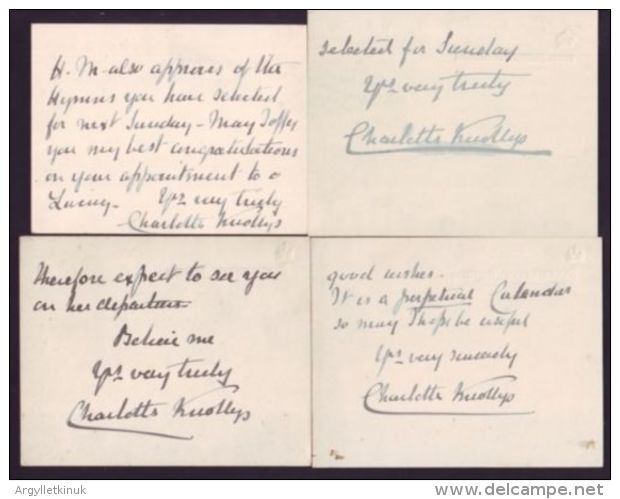 H. M. also approves of the
Hymns you have selected
for next Sunday - May I offer
you my best congratulations
on your appointment to a
Living. Yrs very truly
Charlotte Knollys
selected for Sunday
Yrs very truly
Charlotte Knollys
therefore expect to see you
on her departure
Believe me
Yrs very truly
Charlotte Knollys
good wishes.
It is a perpetual Calendar
so may I hope be useful
Yrs very sincerely
Charlotte Knollys
Argylletkinuk
delcampe.net